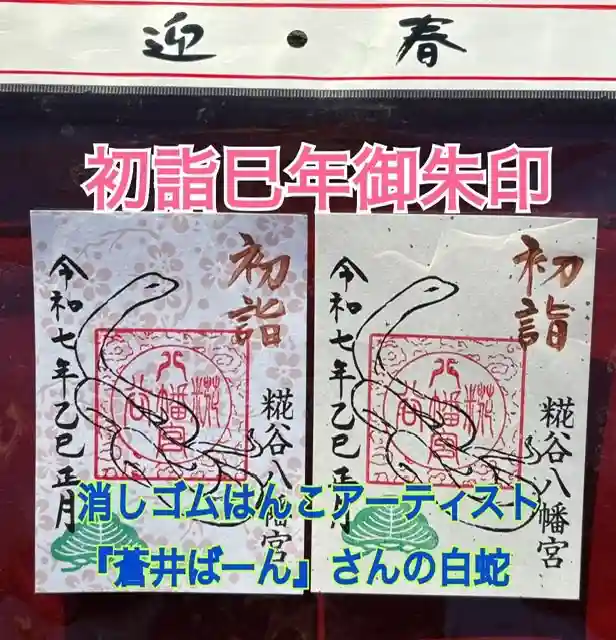 迎・春
初詣巳年御朱印
初詣
糀谷八幡宮
令和七年乙巳正月
初詣
糀谷八幡宮
令和七年乙巳正月
糀谷
八幡宮
糀谷
八幡宮
消しゴムはんこアーティスト
「蒼井ばーん」さんの白蛇